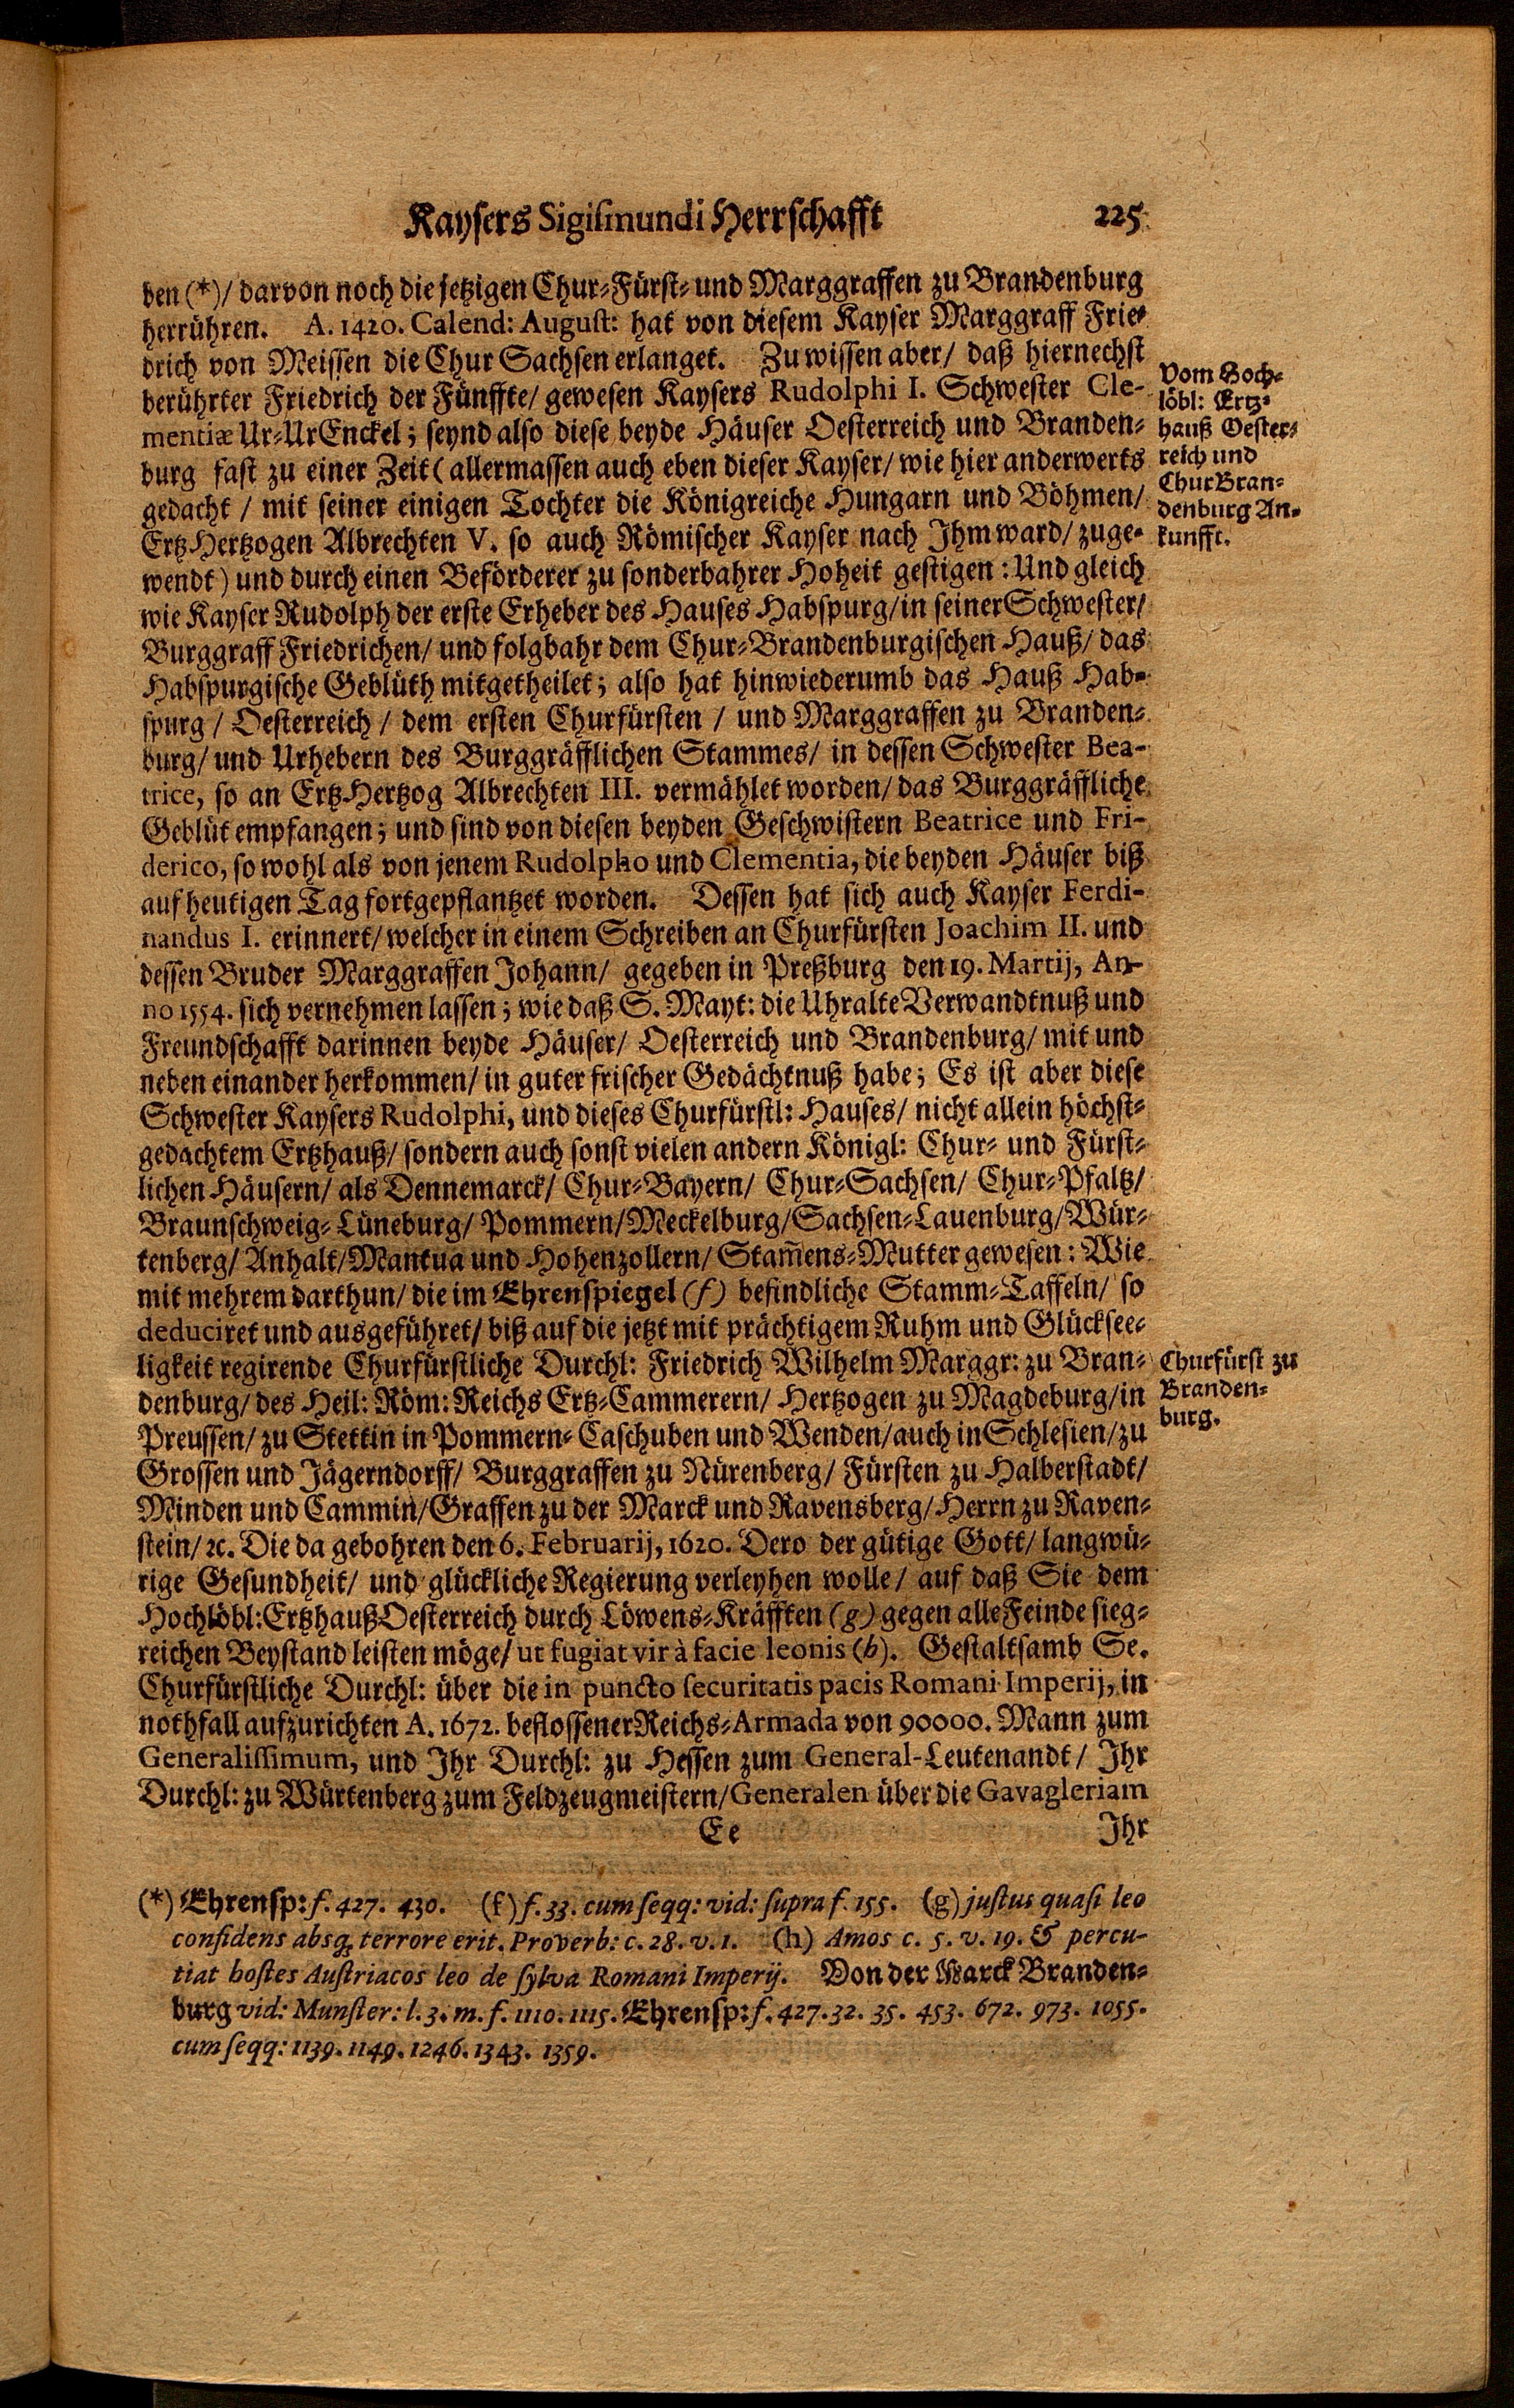 Kaysers Sigismundi Herrschafft 225
den (*)/ darvon noch die jetzigen Chur-Fürst- und Marggraffen zu Brandenburg
herrühren. A. 1420. Calend: August: hat von diesem Kayser Marggraff Frie-
drich von Meissen die Chur Sachsen erlanget. Zu wissen aber/ daß hiernechst
berührter Friedrich der Fünffte/ gewesen Kaysers Rudolphi I. Schwester Cle-
mentiæ Ur-Ur Enckel; seynd also diese beyde Häuser Oesterreich und Branden-
burg fast zu einer Zeit (allermassen auch eben dieser Kayser/ wie hier anderwerts
gedacht / mit seiner einigen Tochter die Königreiche Hungarn und Böhmen/
Ertz Hertzogen Albrechten V. so auch Römischer Kayser nach Ihm ward/ zuge-
wendt) und durch einen Beförderer zu sonderbahrer Hoheit gestigen: Und gleich
wie Kayser Rudolph der erste Erheber des Hauses Habspurg/ in seiner Schwester/
Burggraff Friedrichen/ und folgbahr dem Chur-Brandenburgischen Hauß/ das
Habspurgische Geblüth mitgetheilet; also hat hinwiederumb das Hauß Hab-
spurg / Oesterreich / dem ersten Churfürsten / und Marggraffen zu Branden-
burg/ und Urhebern des Burggräfflichen Stammes/ in dessen Schwester Bea-
trice, so an Ertz Hertzog Albrechten III. vermählet worden/ das Burggräffliche
Geblüt empfangen; und sind von diesen beyden Geschwistern Beatrice und Fri-
derico, so wohl als von jenem Rudolpho und Clementia, die beyden Häuser biß
auf heutigen Tag fortgepflantzet worden. Dessen hat sich auch Kayser Ferdi-
nandus I. erinnert/ welcher in einem Schreiben an Churfürsten Joachim II. und
dessen Bruder Marggraffen Johann/ gegeben in Preßburg den 19. Martij, An-
no 1554. sich vernehmen lassen; wie daß S. Mayt: die Uhralte Verwandtnuß und
Freundschafft darinnen beyde Häuser/ Oesterreich und Brandenburg/ mit und
neben einander herkommen/ in guter frischer Gedächtnuß habe; Es ist aber diese
Schwester Kaysers Rudolphi, und dieses Churfürstl: Hauses/ nicht allein höchst-
gedachtem Ertzhauß/ sondern auch sonst vielen andern Königl: Chur- und Fürst-
lichen Häusern/ als Dennemarck/ Chur-Bayern/ Chur-Sachsen/ Chur-Pfaltz/
Braunschweig-Lüneburg/ Pommern/ Meckelburg/ Sachsen-Lauenburg/ Wür-
tenberg/ Anhalt/ Mantua und Hohenzollern/ Stam̃ens-Mutter gewesen: Wie
mit mehrem darthun/ die im Ehrenspiegel (f) befindliche Stamm-Taffeln/ so
deduciret und ausgeführet/ biß auf die jetzt mit prächtigem Ruhm und Glücksee-
ligkeit regirende Churfürstliche Durchl: Friedrich Wilhelm Marggr: zu Bran-
denburg/ des Heil: Röm: Reichs Ertz-Cammerern/ Hertzogen zu Magdeburg/ in
Preussen/ zu Stettin in Pommern-Caschuben und Wenden/ auch in Schlesien/ zu
Grossen und Jägerndorff/ Burggraffen zu Nürenberg/ Fürsten zu Halberstadt/
Minden und Cammin/ Graffen zu der Marck und Ravensberg/ Herrn zu Raven-
stein/ ꝛc. Die da gebohren den 6. Februarij, 1620. Dero der gütige Gott/ langwü-
rige Gesundheit/ und glückliche Regierung verleyhen wolle/ auf daß Sie dem
Hochlöbl: Ertzhauß Oesterreich durch Löwens-Kräfften (g) gegen alle Feinde sieg-
reichen Beystand leisten möge/ ut fugiat vir à facie leonis (h). Gestaltsamb Se.
Churfürstliche Durchl: über die in puncto securitatis pacis Romani Imperij, in
nothfall aufzurichten A. 1672. beflossener Reichs-Armada von 90000. Mann zum
Generalissimum, und Ihr Durchl: zu Hessen zum General-Leutenandt/ Ihr
Durchl: zu Würtenberg zum Feldzeugmeistern/ Generalen über die Gavagleriam
Ee Ihr
Vom Hoch-
löbl: Ertz-
hauß Oester-
reich und
Chur Bran-
denburg An-
kunfft.
Churfürst zu
Branden-
burg.
(*) Ehrensp: f. 427. 430. (f) f. 33. cum seqq: vid: supra f. 155. (g) justus quasi leo
confidens absq; terrore erit. Proverb: c. 28. v. 1. (h) Amos c. 5. v. 19. & percu-
tiat hostes Austriacos leo de sylva Romani Imperij. Von der Marck Branden-
burg vid: Munster: l. 3. m. f. 1110. 1115. Ehrensp: f. 427. 32. 35. 453. 672. 973. 1055.
cum seqq: 1139. 1149. 1246. 1343. 1359.